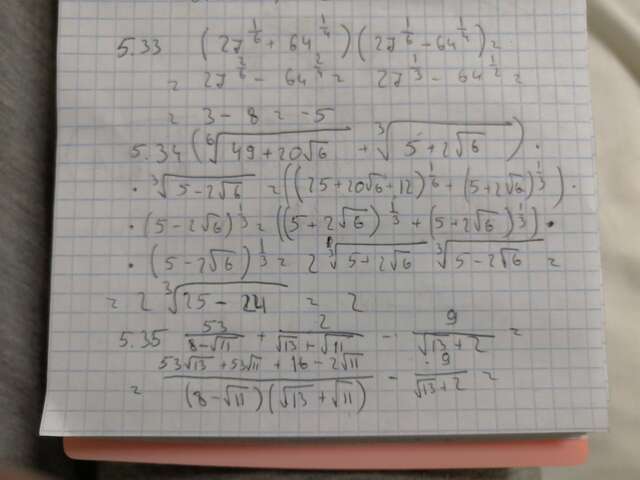 5.33 (27^{1/6} + 64^{1/4})(27^{1/6} - 64^{1/4}) =
= 27^{2/6} - 64^{2/4} = 27^{1/3} - 64^{1/2} =
= 3 - 8 = -5
5.34 (⁶√(49+20√6) + ³√(5+2√6)) ·
· ³√(5-2√6) = ((25+20√6+12)^{1/6} + (5+2√6)^{1/3}) ·
· (5-2√6)^{1/3} = ((5+2√6)^{1/3} + (5+2√6)^{1/3}) ·
· (5-2√6)^{1/3} = 2 ³√(5+2√6) ³√(5-2√6) =
= 2 ³√(25-24) = 2
5.35 53/(8-√11) + 2/(√13+√11) - 9/(√13+2) =
= (53√13+53√11+16-2√11)/((8-√11)(√13+√11)) - 9/(√13+2) =